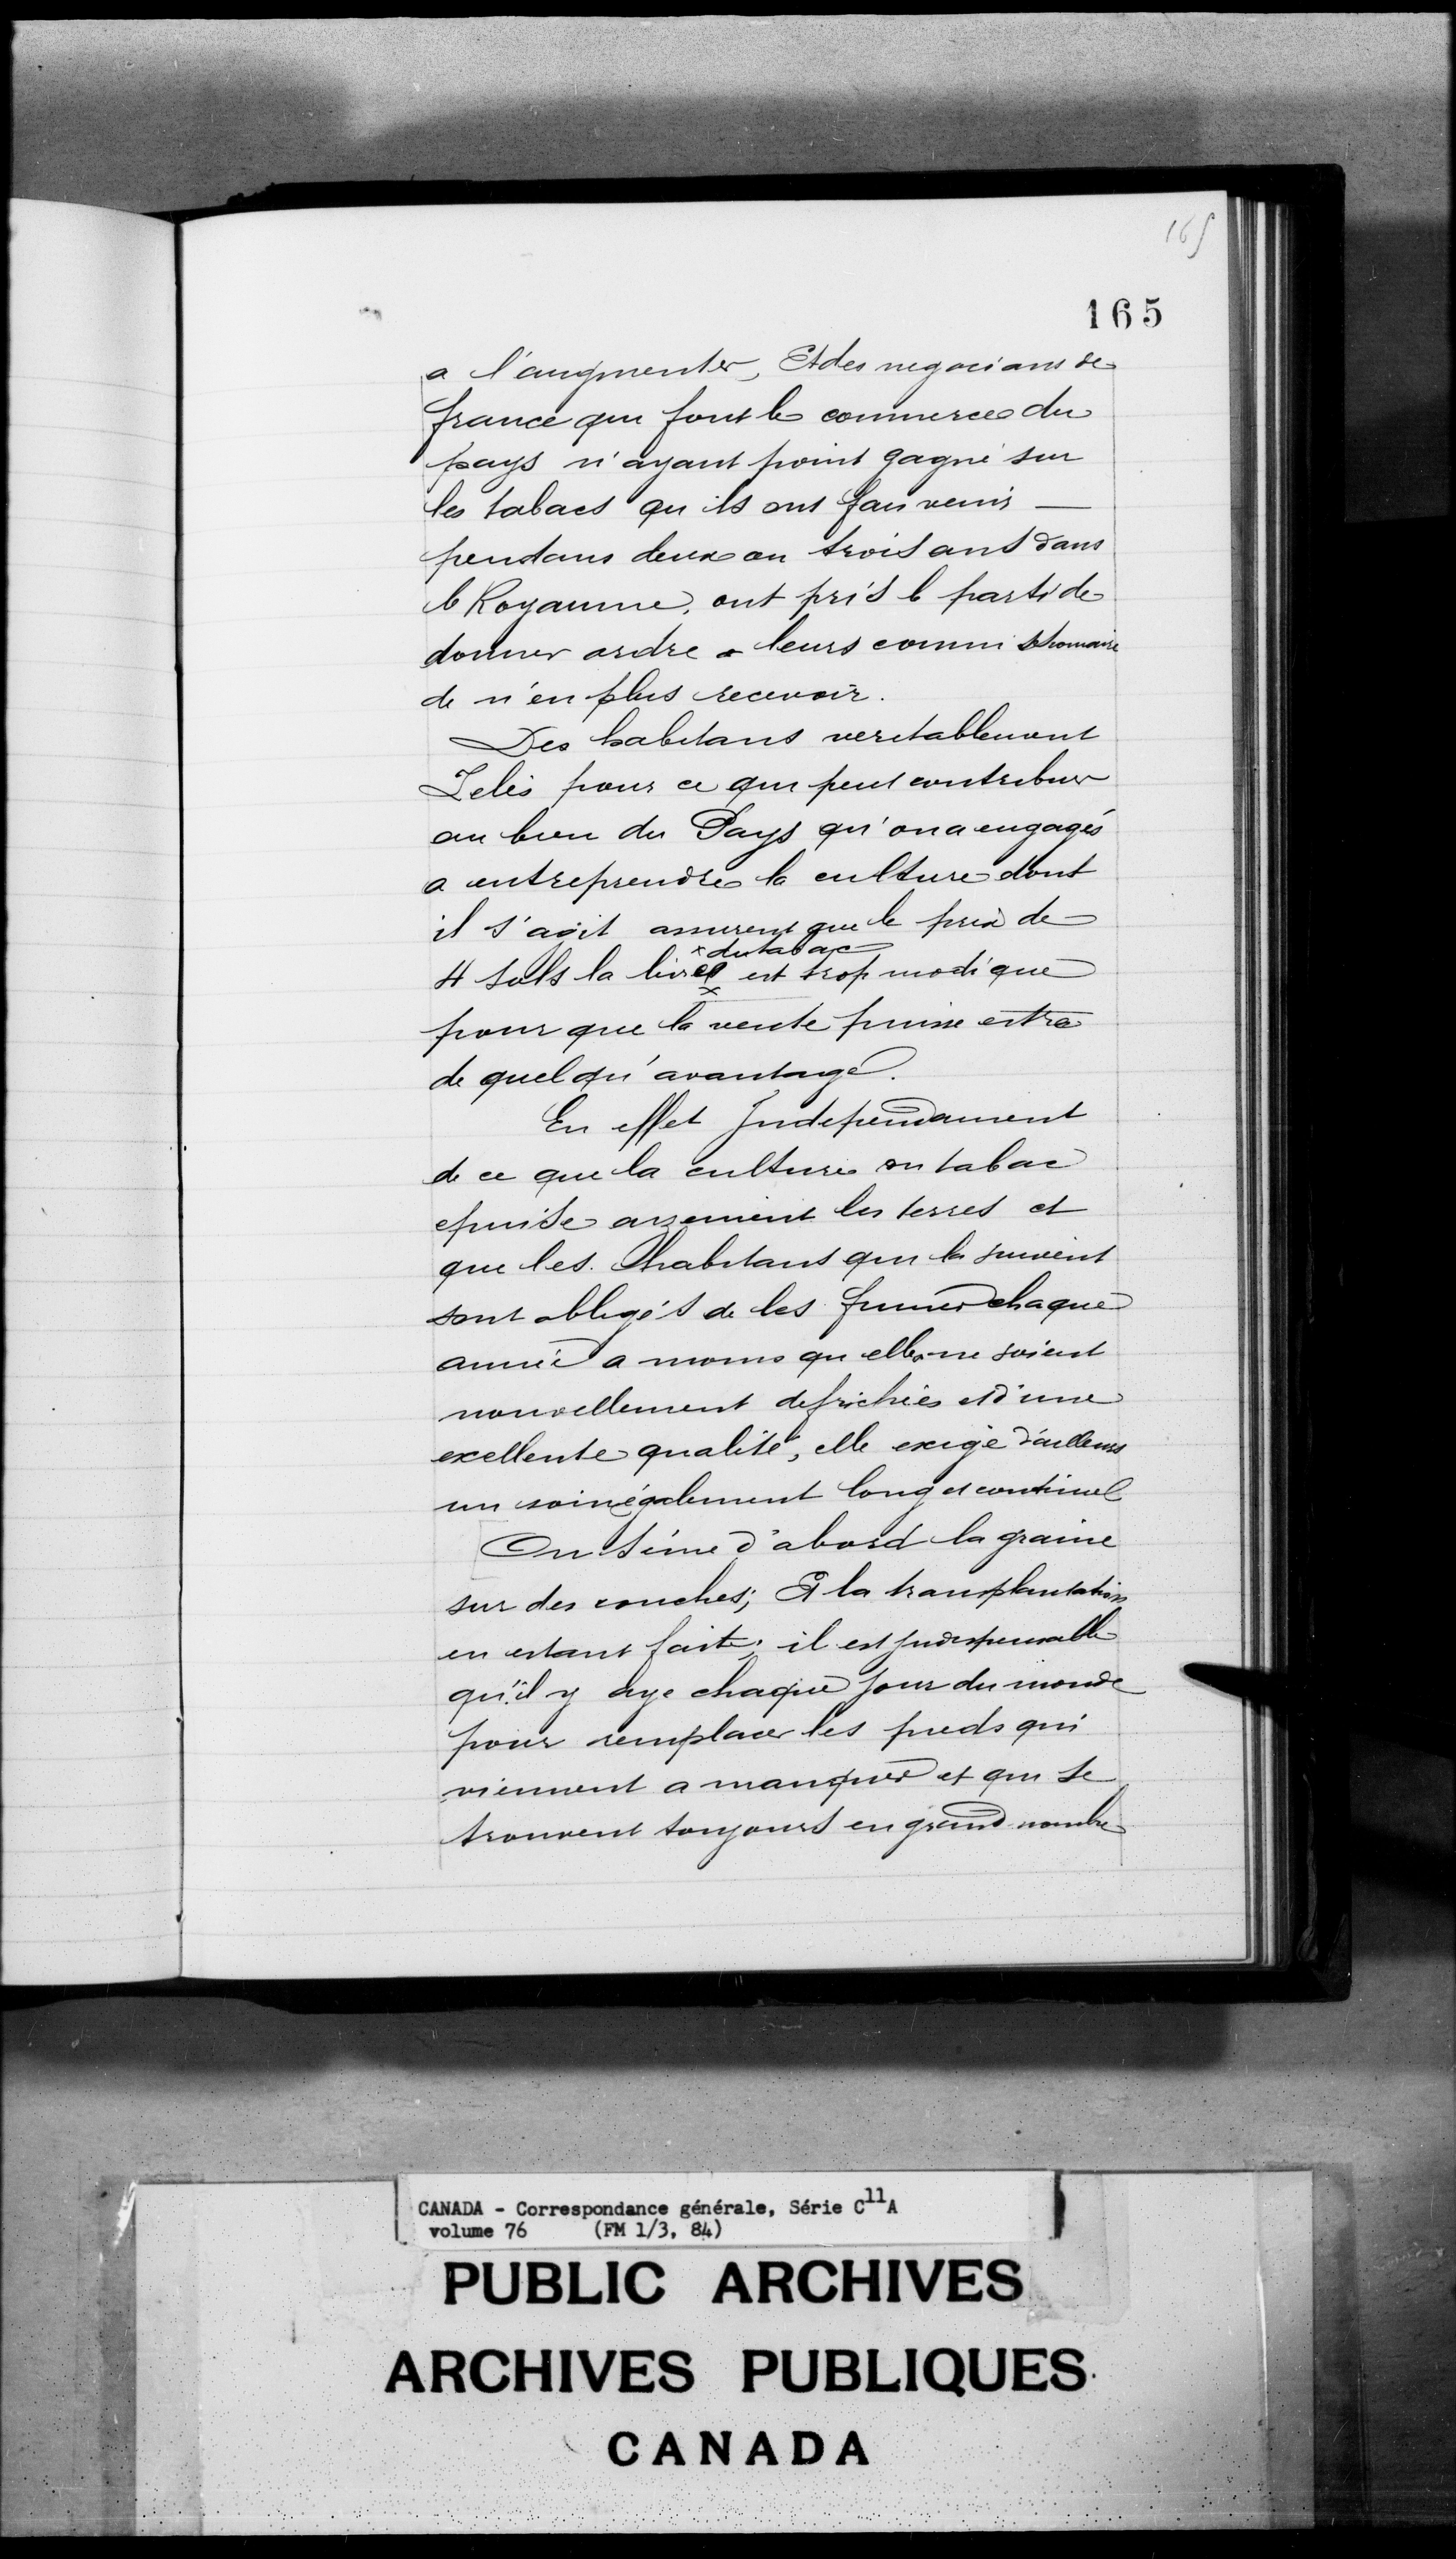 165
165
a l'augmenter, Et des negocians de
france qui font le commerce du
pays n'ayant point gagné sur
les tabacs qu'ils ont fait venir —
pendans deux ou trois ans dans
le Royaume, ont pris le parti de
donner ordre a leurs commissionnaire
de n'en plus recevoir.
Des habitans veritablement
Zelés pour ce qui peut contribuer
au bien du Pays qu'on a engagés
a entreprendre la culture dont
il s'agit assurent que le prix de
x du tabac
4 sols la livre x est trop modique
pour que la vente puisse estre
de quelqu'avantage.
En effet Independament
de ce que la culture du tabac
epuise aisement les terres et
que les habitans qui la suivent
sont obligés de les fumer chaque
année a moins qu'elles ne soient
nouvellement defrichées et d'une
excellente qualité, elle exige d'ailleurs
un soin également long et continuel
On séme d'abord la graine
sur des couches; Et la transplantation
en estant faite; il est Indispensable
qu'il y aye chaque jour du monde
pour remplacer les pieds qui
viennent a manquer et qui se
trouvent toujours en grand nombre
CANADA - Correspondance générale, Série C11A
volume 76 (FM 1/3, 84)
PUBLIC ARCHIVES
ARCHIVES PUBLIQUES
CANADA